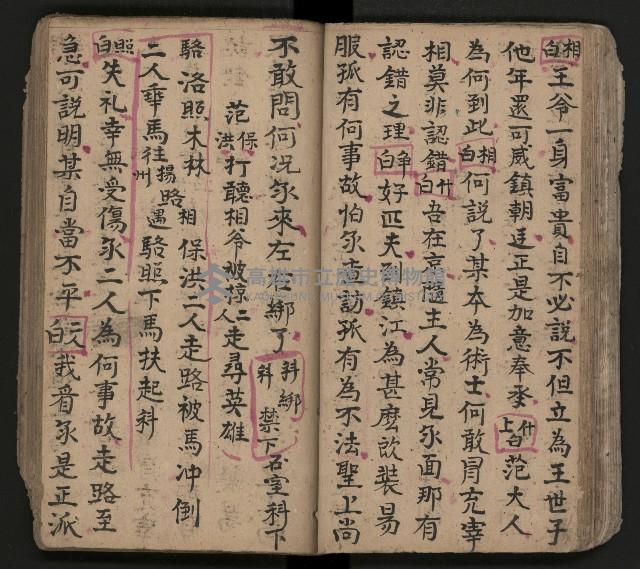 相白王爷一身富貴自不必說不但立為王世子
他年還可威鎮朝廷正是加意奉承什上白范大人
為何到此相白何説了某本為術士何敢冒充宰
相莫非認錯什白吾在京
主人常見尔面那有
認錯之理净白好匹夫
鎮江為甚麽改装易
服孤有何事故怕尔走訪孤有為不法聖上尚
不敢問何况尔來左右綁了科綁科禁下石室科下
范保洪打聽相爷被擄二人走尋英雄
駱洛照木林
相保洪二人走路被馬冲倒
二人乘馬往揚州路遇駱照下馬扶起科
照白失礼幸無受傷尔二人為何事故走路至
急可説明某自當不平二人白我看尔是正派
高雄市立歷史博物館
KAOHSIUNG MUSEUM OF HISTORY